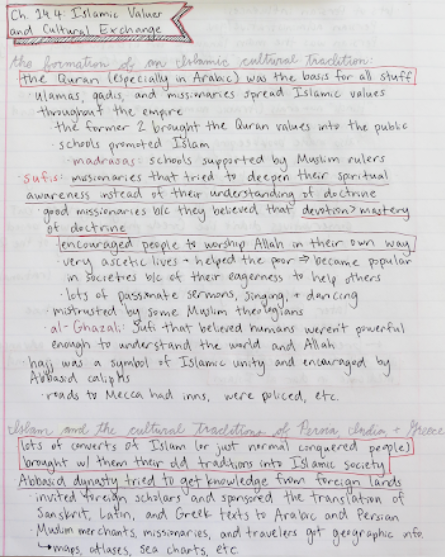 Ch. 14.4: Islamic Values
and Cultural Exchange
the formation of an Islamic cultural tradition:
the Quran (especially in Arabic) was the basis for all stuff
· ulamas, qadis, and missionaries spread Islamic values
throughout the empire
· the former 2 brought the Quran values into the public
· schools promoted Islam
· madrasas: schools supported by Muslim rulers
· Sufis: missionaries that tried to deepen their spiritual
awareness instead of their understanding of doctrine
· good missionaries b/c they believed that devotion > mastery
of doctrine
encouraged people to worship Allah in their own way
· very ascetic lives + helped the poor ⇒ became popular
in societies b/c of their eagerness to help others
· lots of passionate sermons, singing, + dancing
· mistrusted by some Muslim theologians
· al-Ghazali: Sufi that believed humans weren't powerful
enough to understand the world and Allah
· hajj was a symbol of Islamic unity and encouraged by
Abbasid caliphs
· roads to Mecca had inns, were policed, etc.
Islam and the cultural traditions of Persia, India, + Greece
lots of converts of Islam (or just normal conquered people)
brought w/ them their old traditions into Islamic society
Abbasid dynasty tried to get knowledge from foreign lands
· invited foreign scholars and sponsored the translation of
Sanskrit, Latin, and Greek texts to Arabic and Persian
· Muslim merchants, missionaries, and travelers got geographic info.
↳ maps, atlases, sea charts, etc